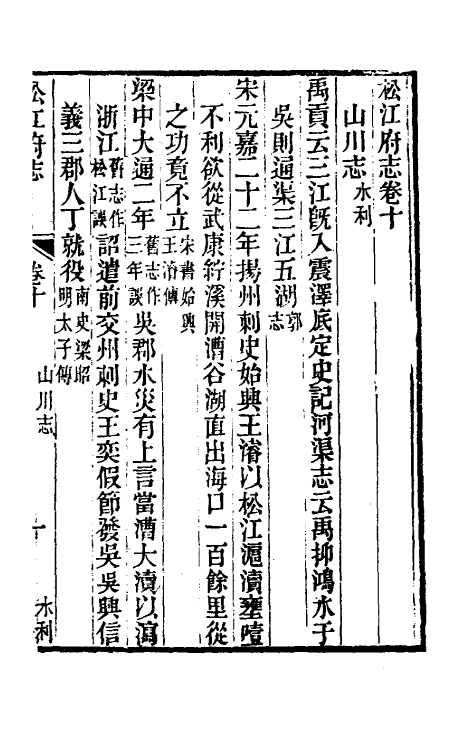 松江府志卷十
山川志 水利
禹貢云三江旣入震澤底定史記河渠志云禹抑鴻水于
吳則通渠三江五湖郭志
宋元嘉二十二年揚州刺史始興王濬以松江滬瀆壅噎
不利欲從武康紵溪開漕谷湖直出海口一百餘里從
之功竟不立宋書始興王濬傳
梁中大通二年舊志作三年誤吳郡水災有上言當漕大瀆以瀉
浙江舊志作松江誤詔遣前交州刺史王奕假節發吳吳興信
義三郡人丁就役南史梁昭明太子傳
松江府志 卷十 山川志 一 水利